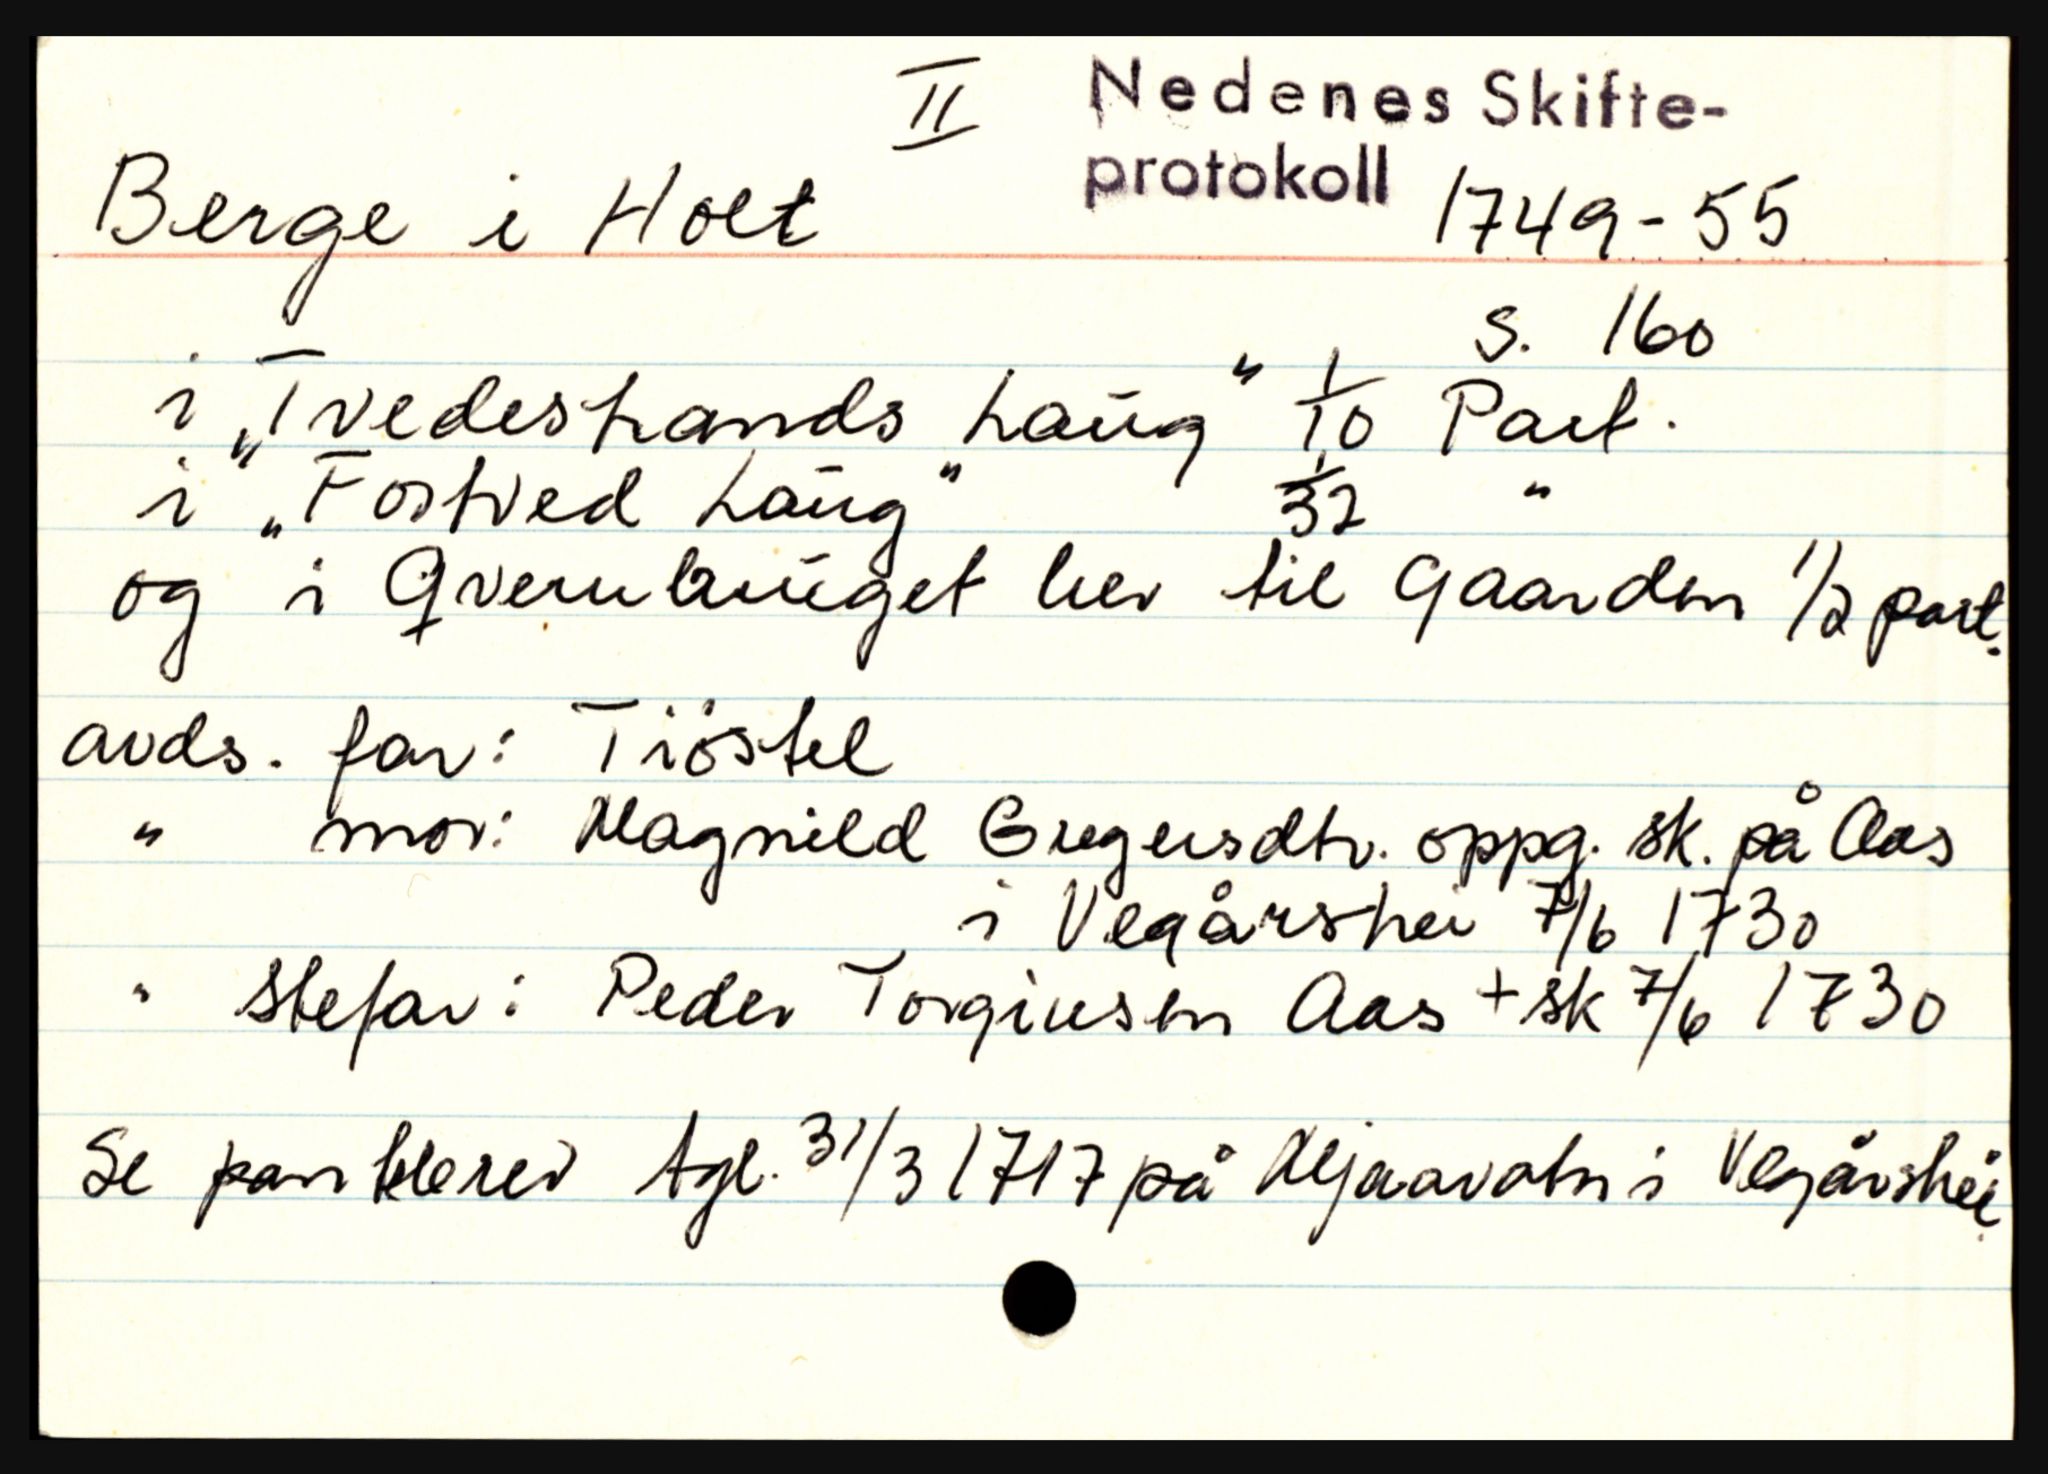 II Nedenes Skifte-
protokoll
Berge i Holt 1749-55
s. 160
i „Tvedestrands Laug" 1/10 Part.
i „Fostved Laug" 1/32 "
og i Qvernlauget her til Gaarden 1/2 part.
avds. far: Tiöstel
" mor: Magnild Gregersdtr. oppg. sk. på Aas
i Vegårshei 7/6 1730
" stefar: Peder Torgiusen Aas + sk 7/6 1730
Se tgl. 31/3 1717 på Mjaavatn i Vegårshei.